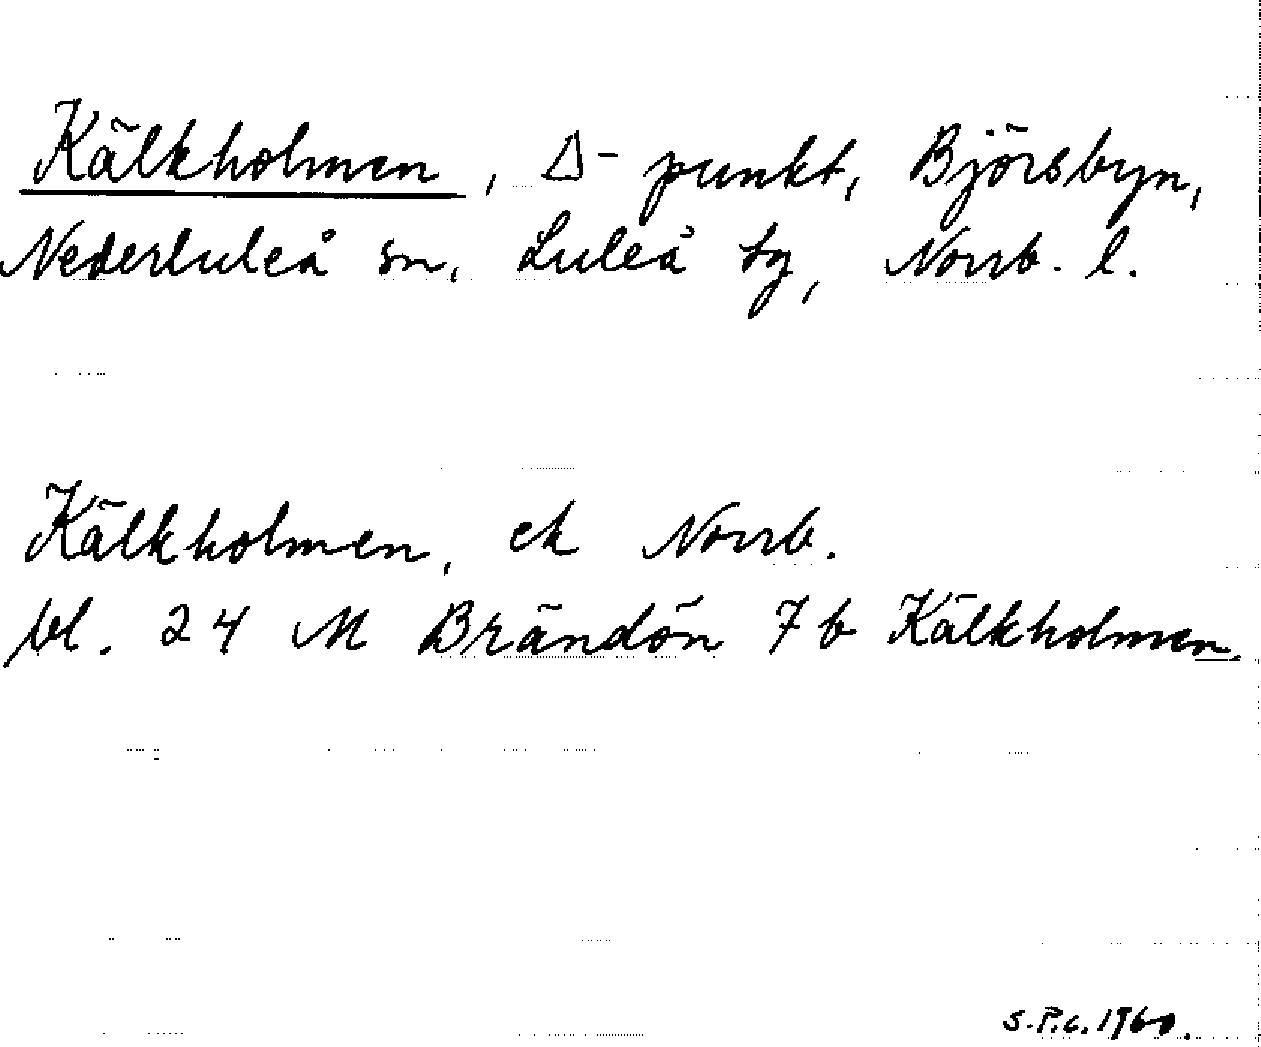 Kälkholmen, Δ-punkt, Björsbyn,
Nederluleå sn, Luleå tg, Norrb. l.
Kälkholmen, ek Norrb.
bl. 24 M Brändön 7 b Kälkholmen.
S.P.c. 1960.